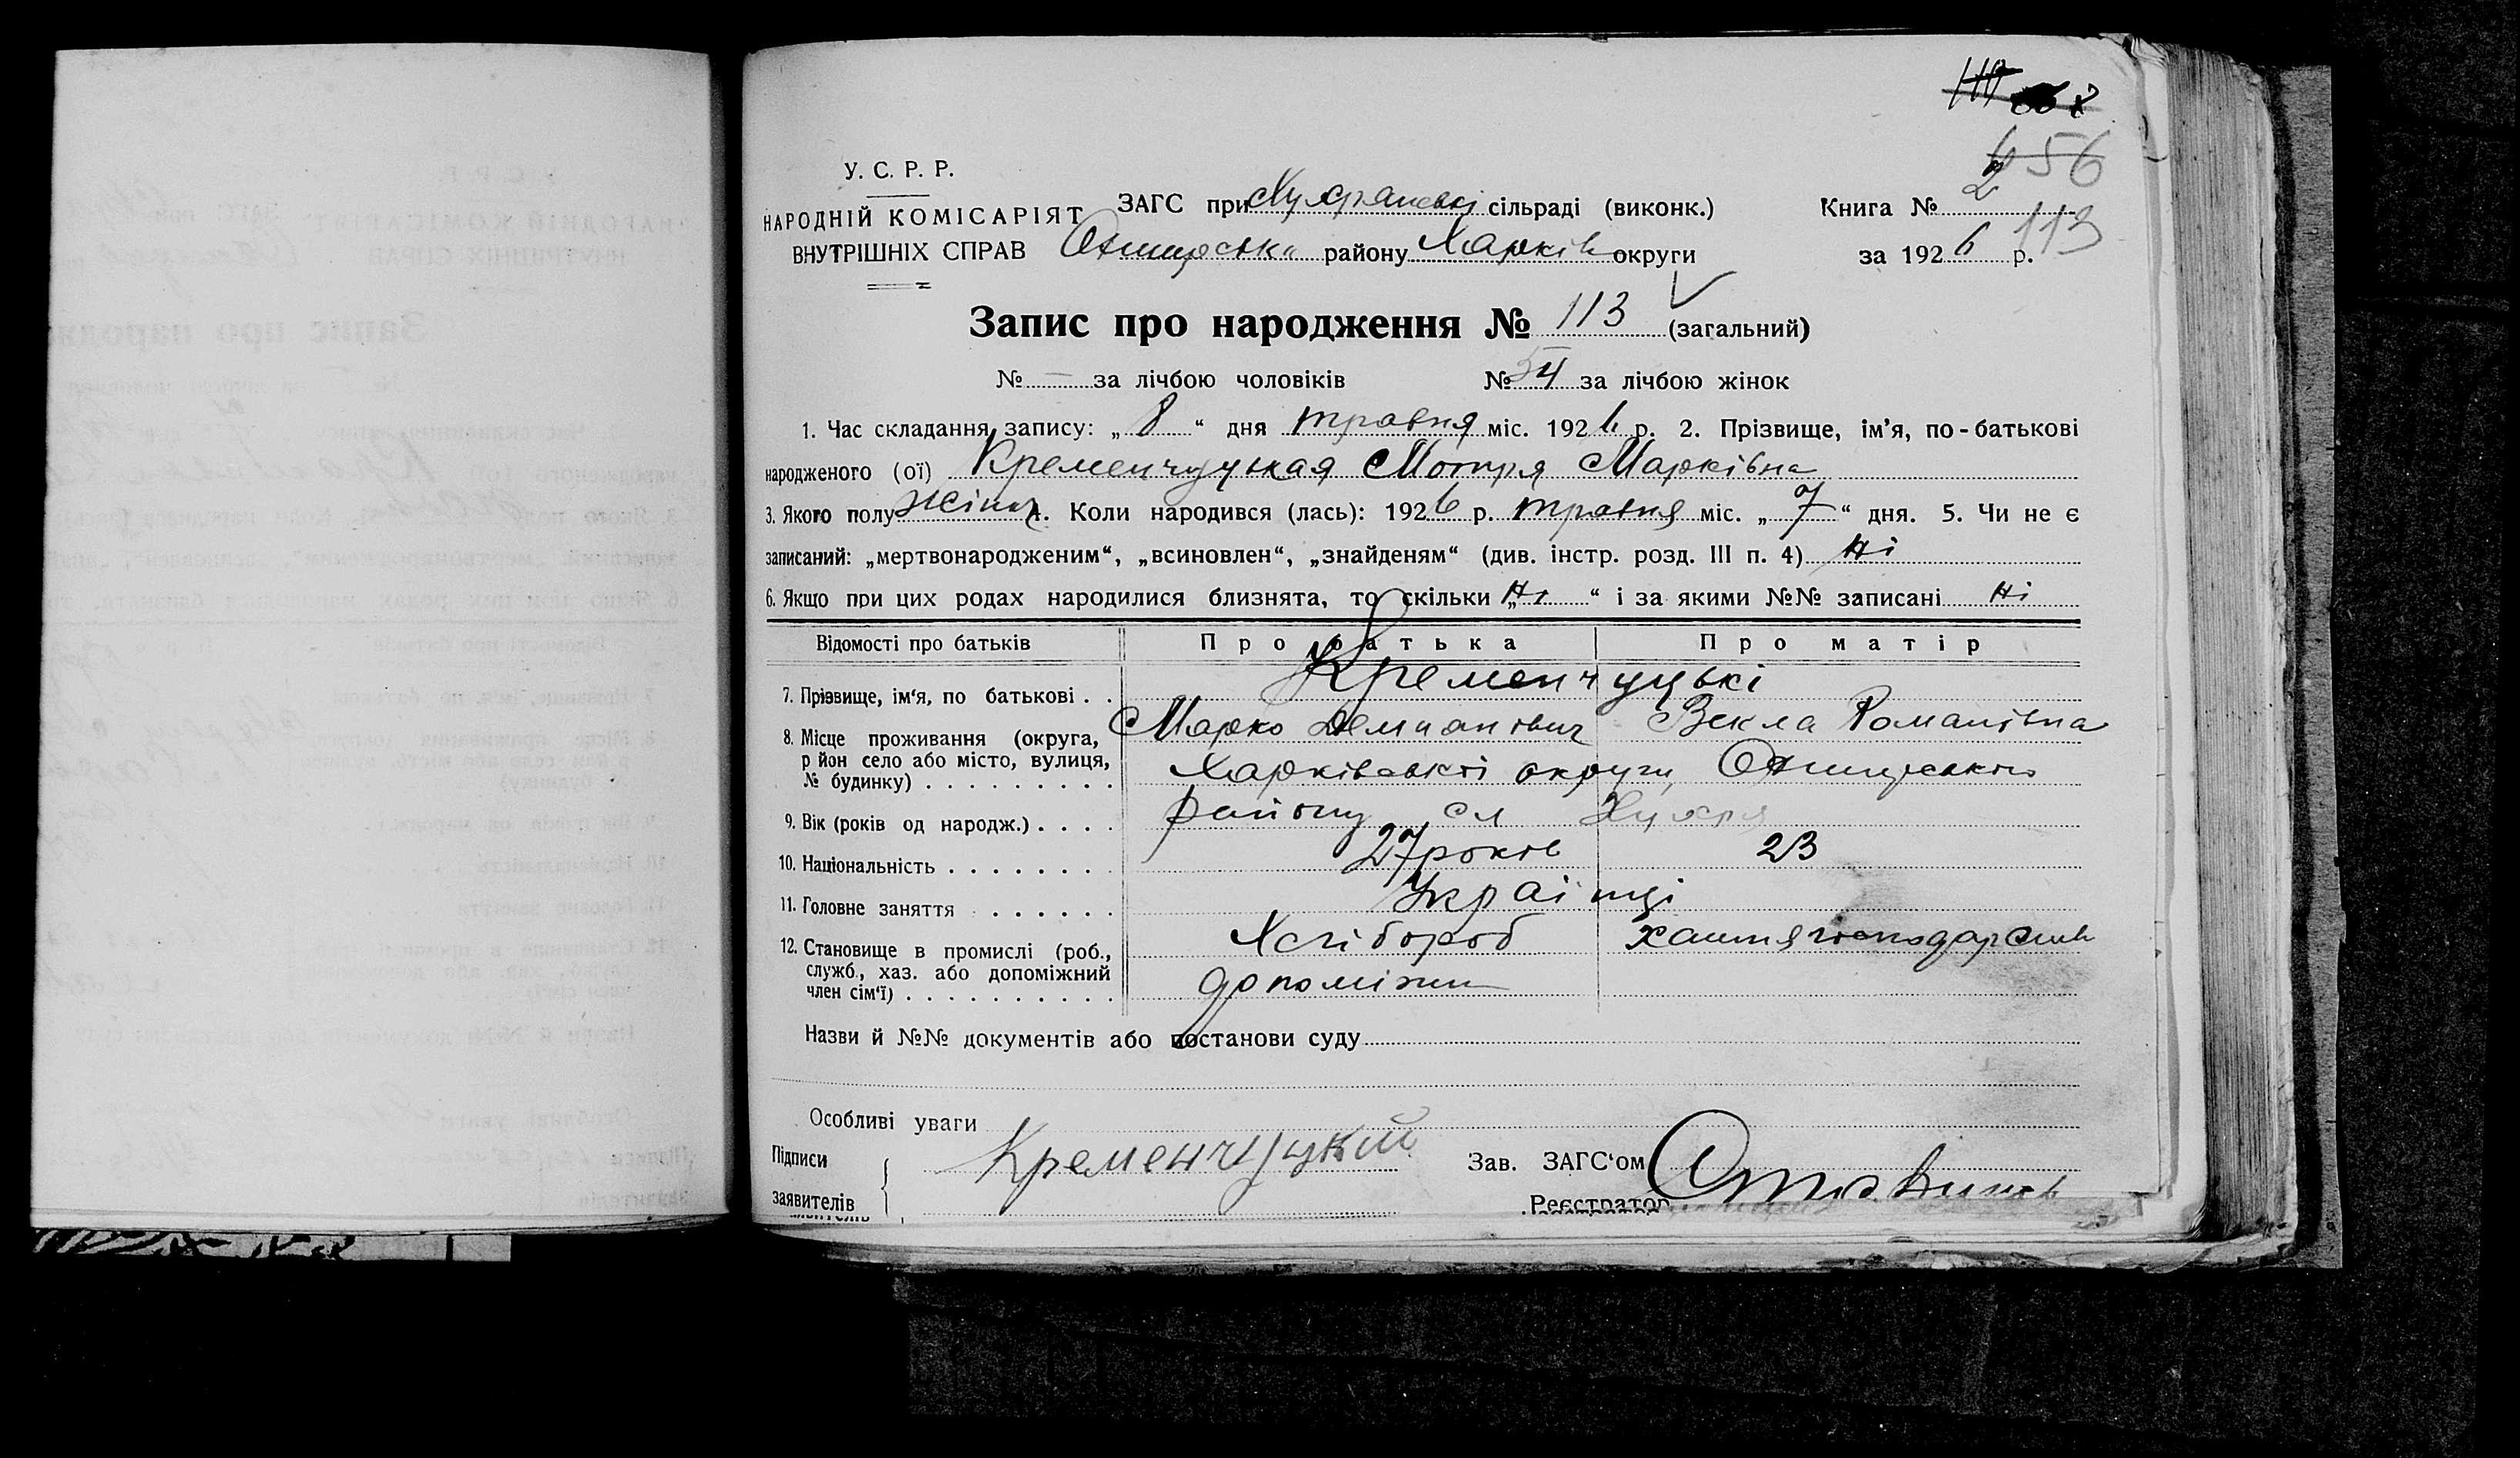 113
У. С. Р. Р.
НАРОДНІЙ КОМІСАРІЯТ
ВНУТРІШНІХ СПРАВ
ЗАГС при сільраді (виконк.)
району Харків округи
Книга № 2
за 1926 р.
Запис про народження № 113 (загальний)
№ — за лічбою чоловіків № 54 за лічбою жінок
1. Час складання запису: „ 8 “ дня травня міс. 1926 р. 2. Прізвище, ім’я, по-батькові
народженого (ої) Кременчуцькая Мотря Марківна
3. Якого полу жіноч. Коли народився (лась): 1926 р. травня міс. „ 7 “ дня. 5. Чи не є
записаний: „мертвонародженим“, „всиновлен“, „знайденям“ (див. інстр. розд. III п. 4) Ні
6. Якщо при цих родах народилися близнята, то скільки „ Ні “ і за якими №№ записані Ні
Відомості про батьків Про батька Про матір
7. Прізвище, ім‘я, по батькові . . Кременчуцькі
Марко Демианович Векла Романівна
8. Місце проживання (округа,
р йон село або місто, вулиця,
№ будинку) . . . . . . . . . Харківської округи,
9. Вік (років од народж.) . . . . району сл
10. Національність . . . . . . . . 27 років 23
11. Головне заняття . . . . . . Українці
12. Становище в промислі (роб., Хлібороб хатня господарств
служб., хаз. або допоміжний
член сім‘ї) . . . . . . . . . . допоміжн
Назви й №№ документів або постанови суду
Особливі уваги
Підписи
заявителів
Кременчуцкий
Зав. ЗАГС‘ом
Реєстратор